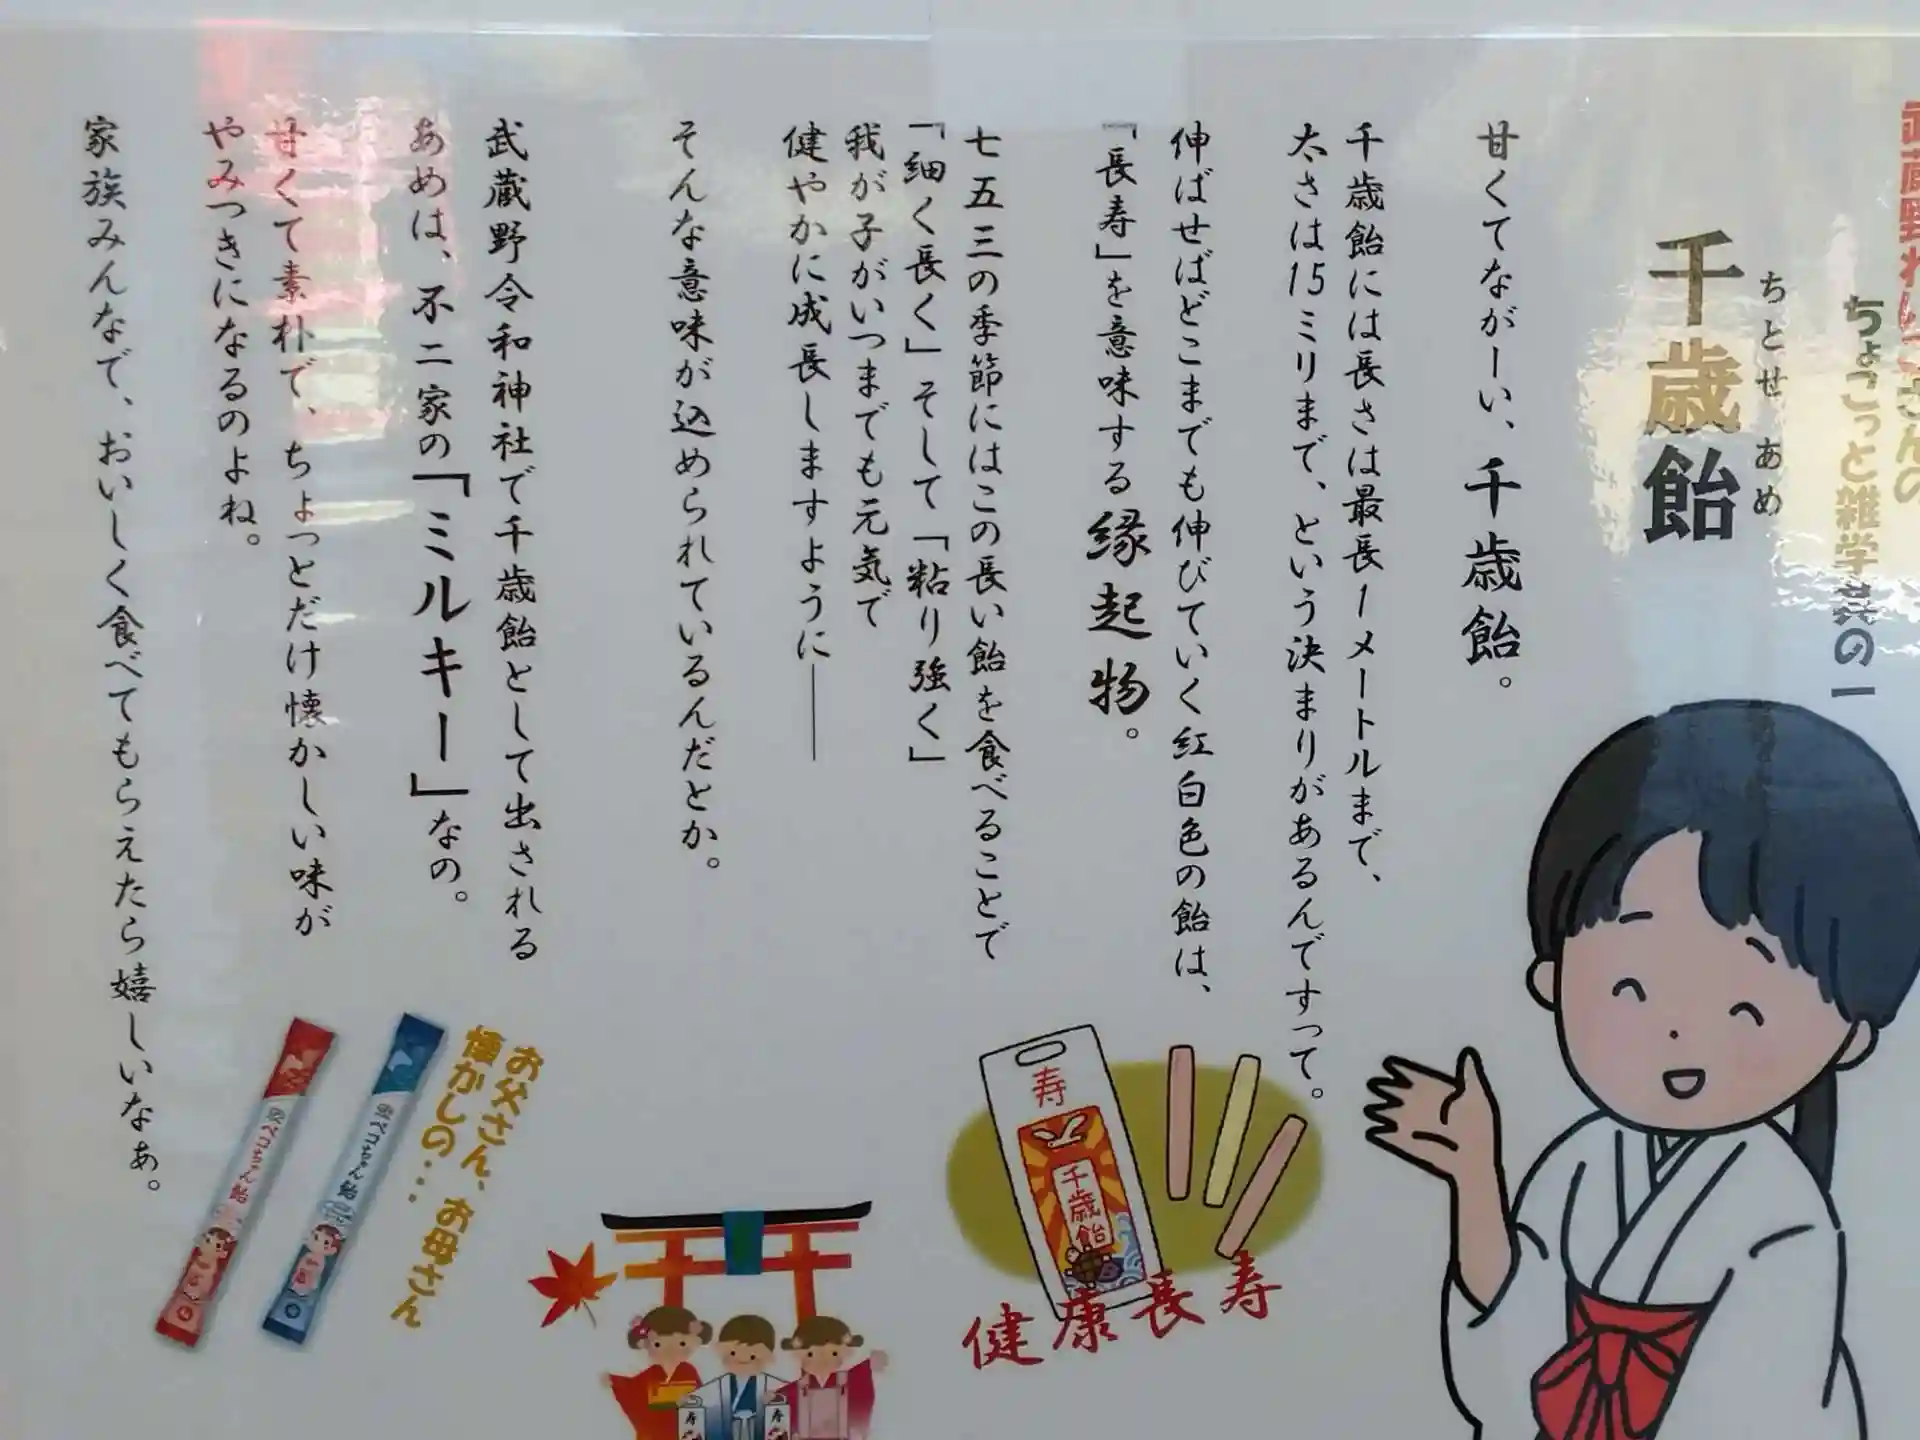 武蔵野れいこさんの
ちょこっと雑学 其の一
ちとせ あめ
千歳飴
甘くてながーい、千歳飴。
千歳飴には長さは最長1メートルまで、
太さは15ミリまで、という決まりがあるんですって。
伸ばせばどこまでも伸びていく紅白色の飴は、
「長寿」を意味する縁起物。
七五三の季節にはこの長い飴を食べることで
「細く長く」そして「粘り強く」
我が子がいつまでも元気で
健やかに成長しますように――
そんな意味が込められているんだとか。
武蔵野令和神社で千歳飴として出される
あめは、不二家の「ミルキー」なの。
甘くて素朴で、ちょっとだけ懐かしい味が
やみつきになるのよね。
家族みんなで、おいしく食べてもらえたら嬉しいなぁ。
寿
千歳飴
健康長寿
寿
寿
お父さん、お母さん
懐かしの...
ペコちゃん飴
ペコちゃん飴